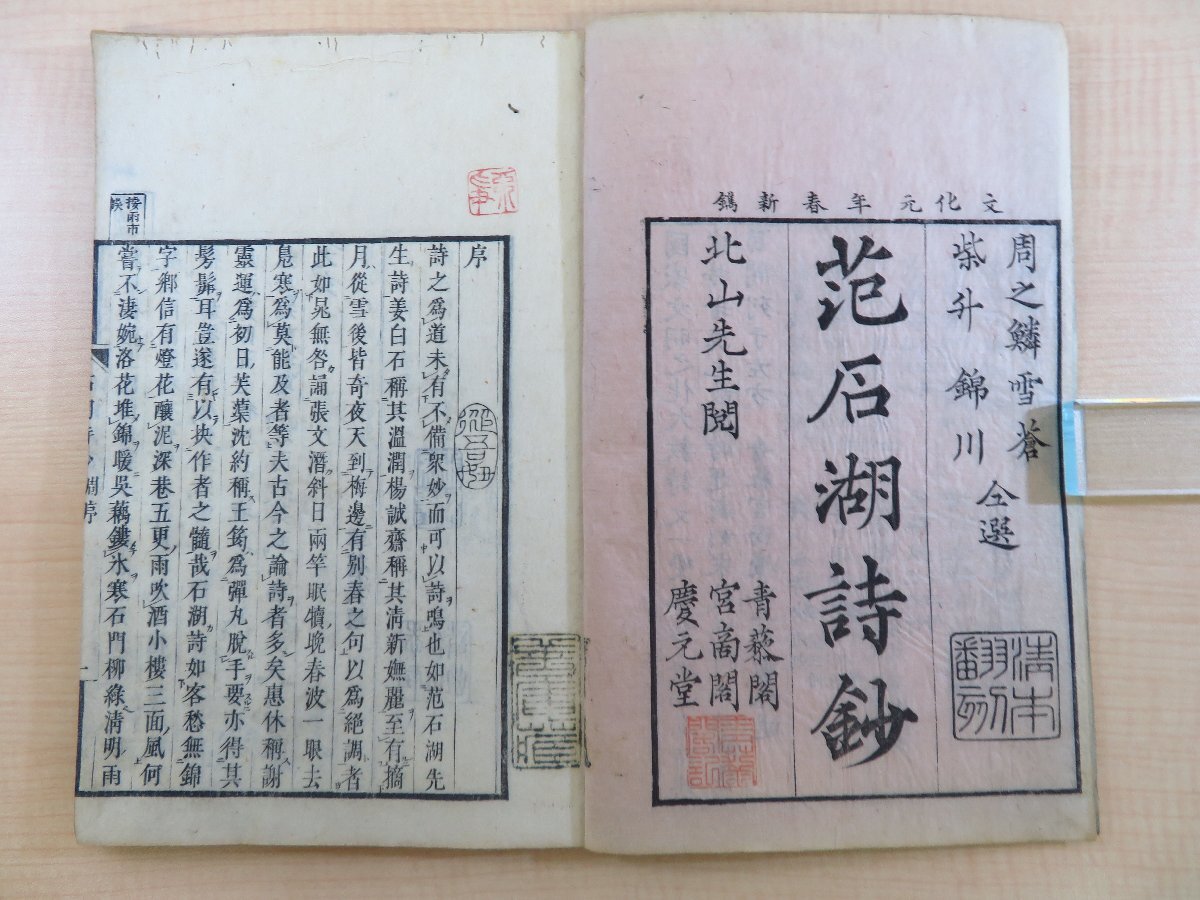 文化元年春新鐫
周之鱗雪蒼
柴升錦川
仝選
范石湖詩鈔
北山先生閲
青藜閣
宮商閣
慶元堂
清本
翻刻
序
詩之爲道未有不備衆妙而可以詩鳴也如范石湖先
生詩姜白石稱其溫潤楊誠齋稱其淸新嫵麗至有摘
月從雪後皆奇夜天到梅邊有別春之句以爲絕調者
此如晁無咎誦張文潛斜日兩竿眠犢晚春波一眼去
鳧寒爲莫能及者等夫古今之論詩者多矣惠休稱謝
靈運爲初日芙蕖沈約稱王筠爲彈丸脫手要亦得其
髣髴耳豈遂有以抉作者之髓哉石湖詩如客愁無錦
字鄉信有燈花釀泥深巷五更雨吹酒小樓三面風何
嘗不淒婉洛花堆錦暖吳藕鏤氷寒石門柳綠淸明雨